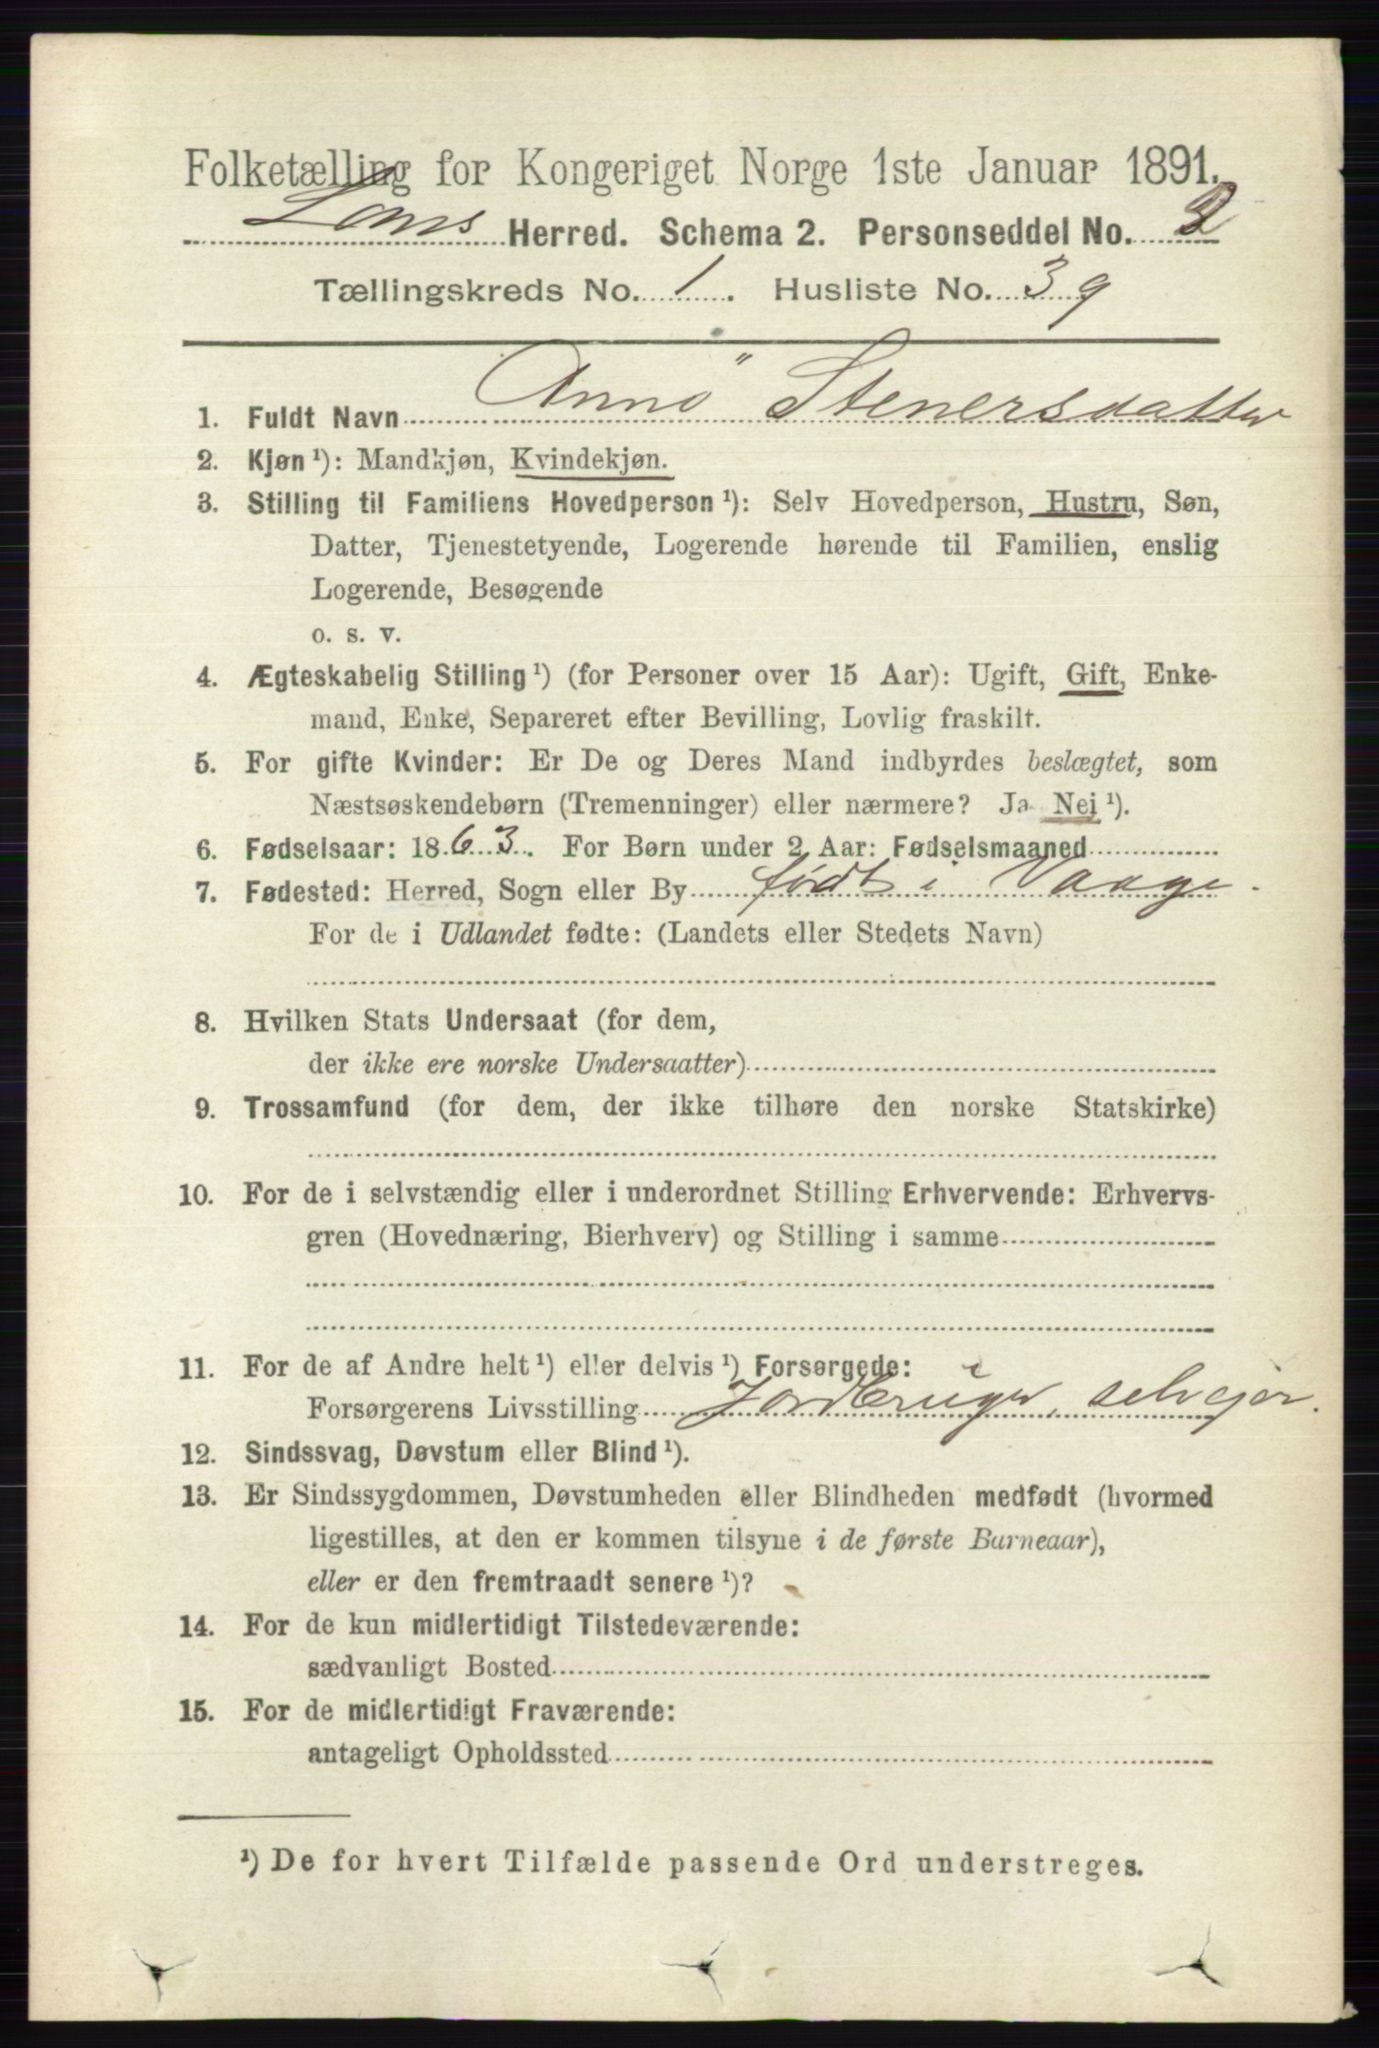 Folketælling for Kongeriget Norge 1ste Januar 1891.
Loms Herred. Schema 2. Personseddel No. 2
Tællingskreds No. 1. Husliste No. 39
1. Fuldt Navn Anno Stenersdatter
2. Kjøn ¹): Mandkjøn, Kvindekjøn.
3. Stilling til Familiens Hovedperson ¹): Selv Hovedperson, Hustru, Søn,
Datter, Tjenestetyende, Logerende hørende til Familien, enslig
Logerende, Besøgende
o. s. v.
4. Ægteskabelig Stilling ¹) (for Personer over 15 Aar): Ugift, Gift, Enke-
mand, Enke, Separeret efter Bevilling, Lovlig fraskilt.
5. For gifte Kvinder: Er De og Deres Mand indbyrdes beslægtet, som
Næstsøskendebørn (Tremenninger) eller nærmere? Ja Nei ¹).
6. Fødselsaar: 1863. For Børn under 2 Aar: Fødselsmaaned
7. Fødested: Herred, Sogn eller By født i Vaage.
For de i Udlandet fødte: (Landets eller Stedets Navn)
8. Hvilken Stats Undersaat (for dem,
der ikke ere norske Undersaatter)
9. Trossamfund (for dem, der ikke tilhøre den norske Statskirke)
10. For de i selvstændig eller i underordnet Stilling Erhvervende: Erhvervs-
gren (Hovednæring, Bierhverv) og Stilling i samme
11. For de af Andre helt ¹) eller delvis ¹) Forsørgede:
Forsørgerens Livsstilling Jordbruger, selvejer.
12. Sindssvag, Døvstum eller Blind ¹).
13. Er Sindssygdommen, Døvstumheden eller Blindheden medfødt (hvormed
ligestilles, at den er kommen tilsyne i de første Barneaar),
eller er den fremtraadt senere ¹)?
14. For de kun midlertidigt Tilstedeværende:
sædvanligt Bosted
15. For de midlertidigt Fraværende:
antageligt Opholdssted
¹) De for hvert Tilfælde passende Ord understreges.